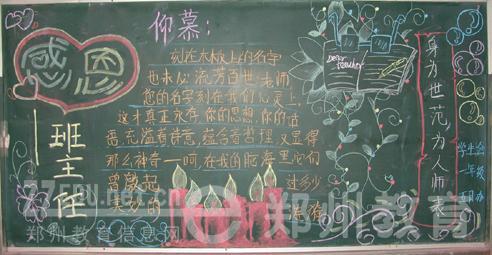 感恩
班主任
仰慕:
刻在木板上的名字
也未必流芳百世,老师
您的名字刻在我们心灵上,
这才真正永存,你的思想,你的话
语,充溢着诗意,蕴含着哲理,又显得
那么神奇——呵,在我的脑海里,它们
曾激起 过多少
美妙的
Dear
teacher
身为世范为人师表
学生会
年级
郑州教育
郑州教育信息网